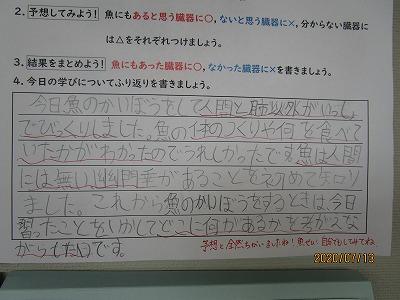 2. 予想してみよう! 魚にもあると思う臓器に○,ないと思う臓器に×,分からない臓器に
は△をそれぞれつけましょう。
3. 結果をまとめよう! 魚にもあった臓器に○,なかった臓器に×を書きましょう。
4. 今日の学びについてふり返りを書きましょう。
今日魚のかいぼうをして人間と肺以外がいっしょ
でびっくりしました。魚の体のつくりや何を食べて
いたかがわかったのでうれしかったです魚は人間
には無い幽門垂があることを初めて知り
ました。これから魚のかいぼうをするときは今日
習ったことをいかしてどこに何があるかを考えな
がらしたいです。
予想と全然ちがいましたね!魚せい 自宅でもしてみてね
2020/07/13